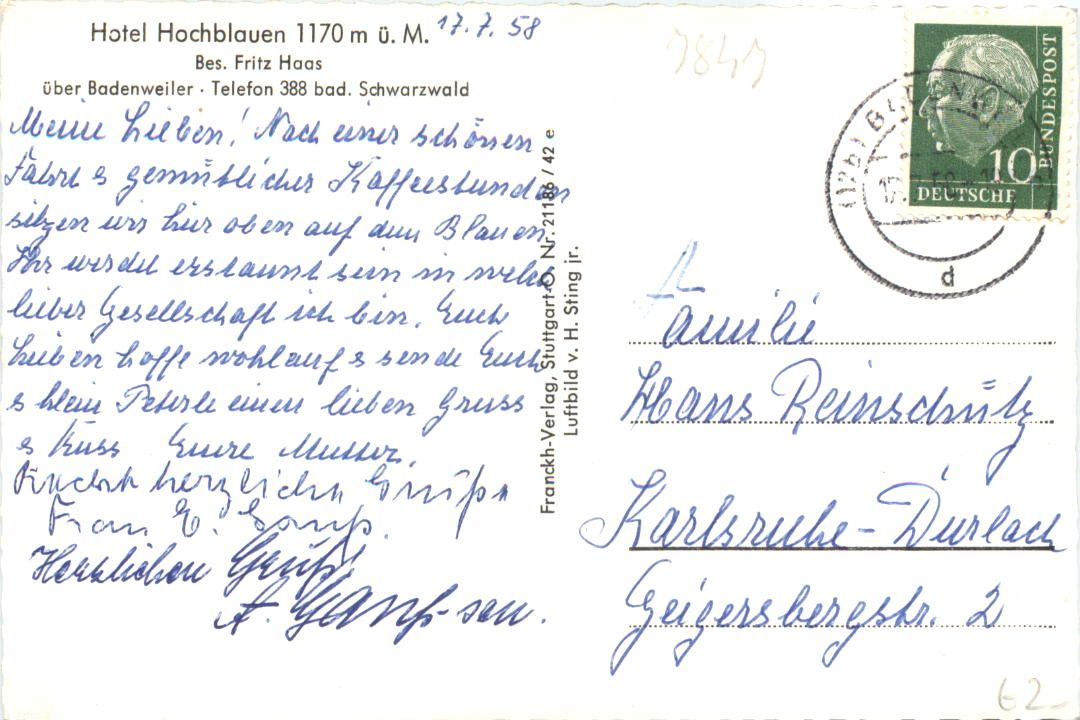 Hotel Hochblauen 1170 m ü. M. 17.7.58
Bes. Fritz Haas
über Badenweiler · Telefon 388 bad. Schwarzwald
Meine Lieben! Nach einer schönen
Fahrt & gemütlicher Kaffeestunden
sitzen wir hier oben auf dem Blauen
Ihr werdet erstaunt sein in welch
lieber Gesellschaft ich bin. Euch
Lieben hoffe wohlauf & sende Euch
& klein Peterle einen lieben Gruss
& Kuss Eure Mutter.
herzliche Grüße
Frau E.
Herzlichen Gruß
A. sen.
Franckh-Verlag, Stuttgart-O, Nr. 21186 / 42 e
Luftbild v. H. Sting jr.
7841
10
DEUTSCHE
BUNDESPOST
d
Familie
Hans Reinschütz
Karlsruhe-Durlach
Geigersbergstr. 2
62